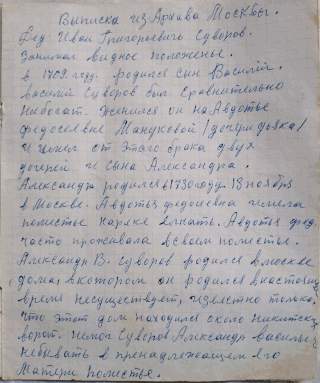 Выписка из Архива Москвы.
Дед Иван Григорьевич Суворов.
Занимал видное положенье.
в 1709 году родился син Василий.
василий Суворов был сравнительно
Небогат. Женился он на Авдотье
Федосеевне Мануковой /дочери дьяка/
и имел от этого брака двух
дочерей и сына Александра.
Александр родился в 1730 году 13 ноября
в Москве. Авдотья федосеевна имела
поместье на реке
часто проживала в своем поместье.
Александр В. Суворов родился в москве
дома, в котором он родился в настоящ
время несуществует, известно только,
что этот дом находился около никитск
ворот. немог Суворов Александр василье
небывать в принадлежащем его
Матери поместье.